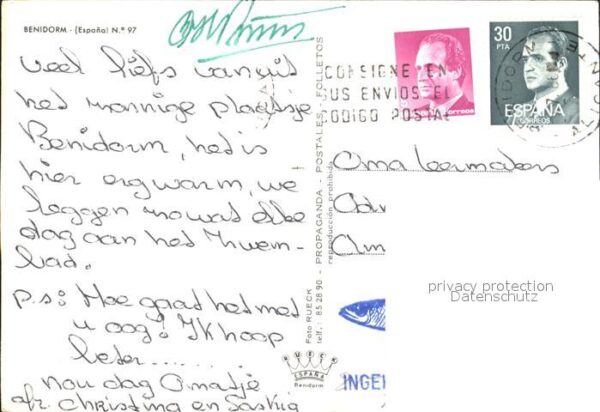 BENIDORM - (España) N.º 97
Veel liefs vanuit
het zonnige plaatsje
Benidorm, het is
hier erg warm, we
leggen zowat elke
dag aan het zwem-
bad.
p.s: Hoe gaat het met
u oog? Ik hoop
beter..........
nou dag Omatje
afz. Christina en Saskia
Foto RUECK
telf.: 85 28 90 - PROPAGANDA - POSTALES - FOLLETOS
reproducción prohibida
RUECK
ESPAÑA
Benidorm
CONSIGNE EN
SUS ENVIOS EL
CODIGO POSTAL
correos
30
PTA
ESPAÑA
CORREOS
Oma
Am
privacy protection
Datenschutz
INGE